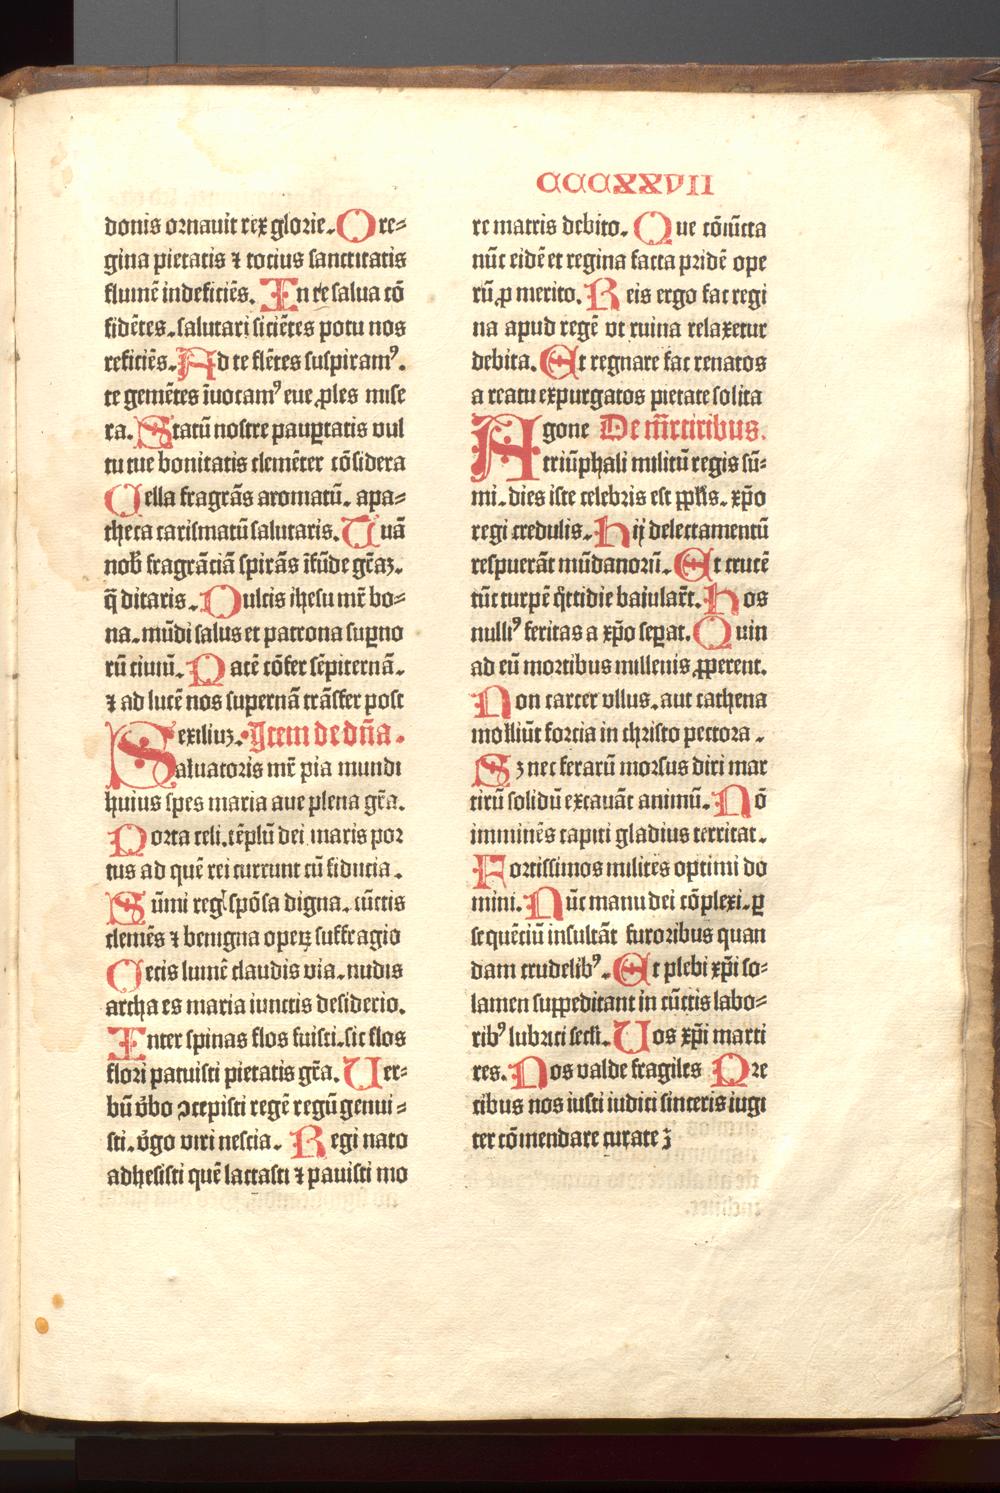 CCCXXVII
donis ornauit rex glorie. O re=
gina pietatis ⁊ tocius sanctitatis
flumē indeficiēs. In te salua cō
fidētes. salutari siciētes potu nos
reficiēs. Ad te flētes suspiramꝰ.
te gemētes īuocamꝰ eue ꝓles mise
ra. Statū nostre pauꝑtatis vul
tu tue bonitatis clemēter cōsidera
Cella fragrās aromatū. apa=
theca carismatū salutaris. Tuā
nob̄ fragrāciā spirās īfūde gr̄aꝫ.
q̄ ditaris. Dulcis ihesu mr̄ bo=
na. mūdi salus et patrona suꝑno
rū ciuiū. Pacē cōfer sēpiternā.
⁊ ad lucē nos supernā trāsfer post
exiliuꝫ. Item de dn̄a.
Saluatoris mr̄ pia mundi
huius spes maria aue plena gr̄a.
Porta celi. tēplū dei maris por
tus ad quē rei currunt cū fiducia.
Sūmi regꝭ spōsa digna. cūctis
clemēs ⁊ benigna operꝫ suffragio
Cecis lumē claudis via. nudis
archa es maria iunctis desiderio.
Inter spinas flos fuisti. sic flos
flori patuisti pietatis gr̄a. Uer=
bū v̄bo ↄcepisti regē regū genui=
sti. v̄go viri nescia. Regi nato
adhesisti quē lactasti ⁊ pauisti mo
re matris debito. Que cōiūcta
nūc eidē et regina facta pridē ope
rū ꝓ merito. Reis ergo fac regi
na apud regē vt ruina relaxetur
debita. Et regnare fac renatos
a reatu expurgatos pietate solita
Agone De mr̄tiribus.
triūphali militū regis sū=
mi. dies iste celebris est ppl̄is. xp̄o
regi credulis. Hij delectamentū
respuerāt mūdanorū. Et crucē
tūc turpē q̄ttidie baiular̄t. Hos
nulliꝰ feritas a xp̄o seꝑat. Quin
ad eū mortibus millenis ꝓperent.
Non carcer vllus. aut cathena
molliūt forcia in christo pectora.
Sꝫ nec ferarū morsus diri mar
tirū solidū excauāt animū. Nō
imminēs capiti gladius territat.
Fortissimos milites optimi do
mini. Nūc manu dei cōplexi. ꝑ
sequēciū insultāt furoribus quan
dam crudelibꝰ. Et plebi xp̄i so=
lamen suppeditant in cūctis labo=
ribꝰ lubrici secl̄i. Uos xp̄i marti
res. Nos valde fragiles Pre
cibus nos iusti iudici sinceris iugi
ter cōmendare curate